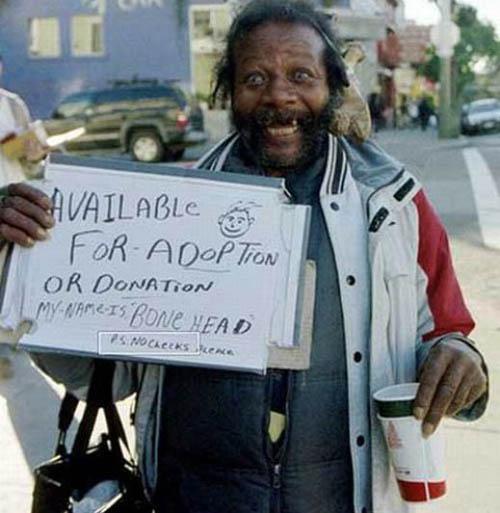 AVAILABLE
FOR-ADOPTION
OR DONATION
MY-NAME-IS "BONE HEAD"
P.S. NO CHECKS PLEASE